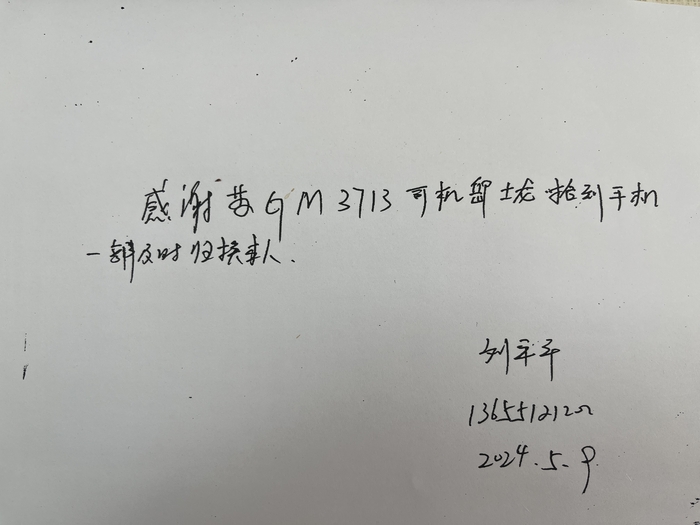 感谢苏GM3713司机邹士龙捡到手机
一部及时归换本人.
刘平平
13655121200
2024.5.9